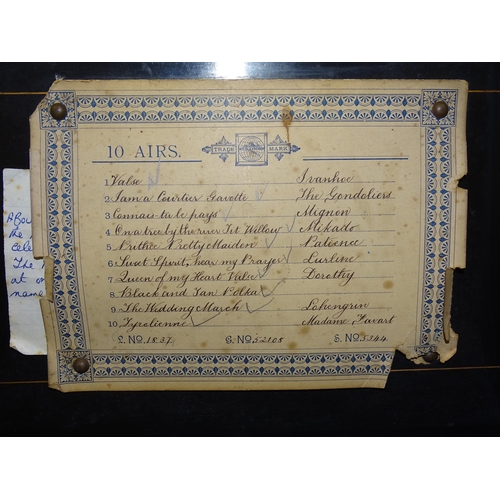 10 AIRS.
TRADE MARK
1 Valse Ivanhoe
2 I am a Courtier Gavotte The Gondoliers
3 Connais tu le pays Mignon
4 On a tree by the river Tit Willow Mikado
5 Prithee Pretty Maiden Patience
6 Swet Spirit, hear my Prayer Lurline
7 Queen of my Heart Valse Dorothy
8 Black and Tan Polka
9 The Wedding March Lohengrin
10 Tyrolienne Madame Favart
L. NO. 1837. G. NO. 52108 S. NO. 5244
the
cele
The
at
name